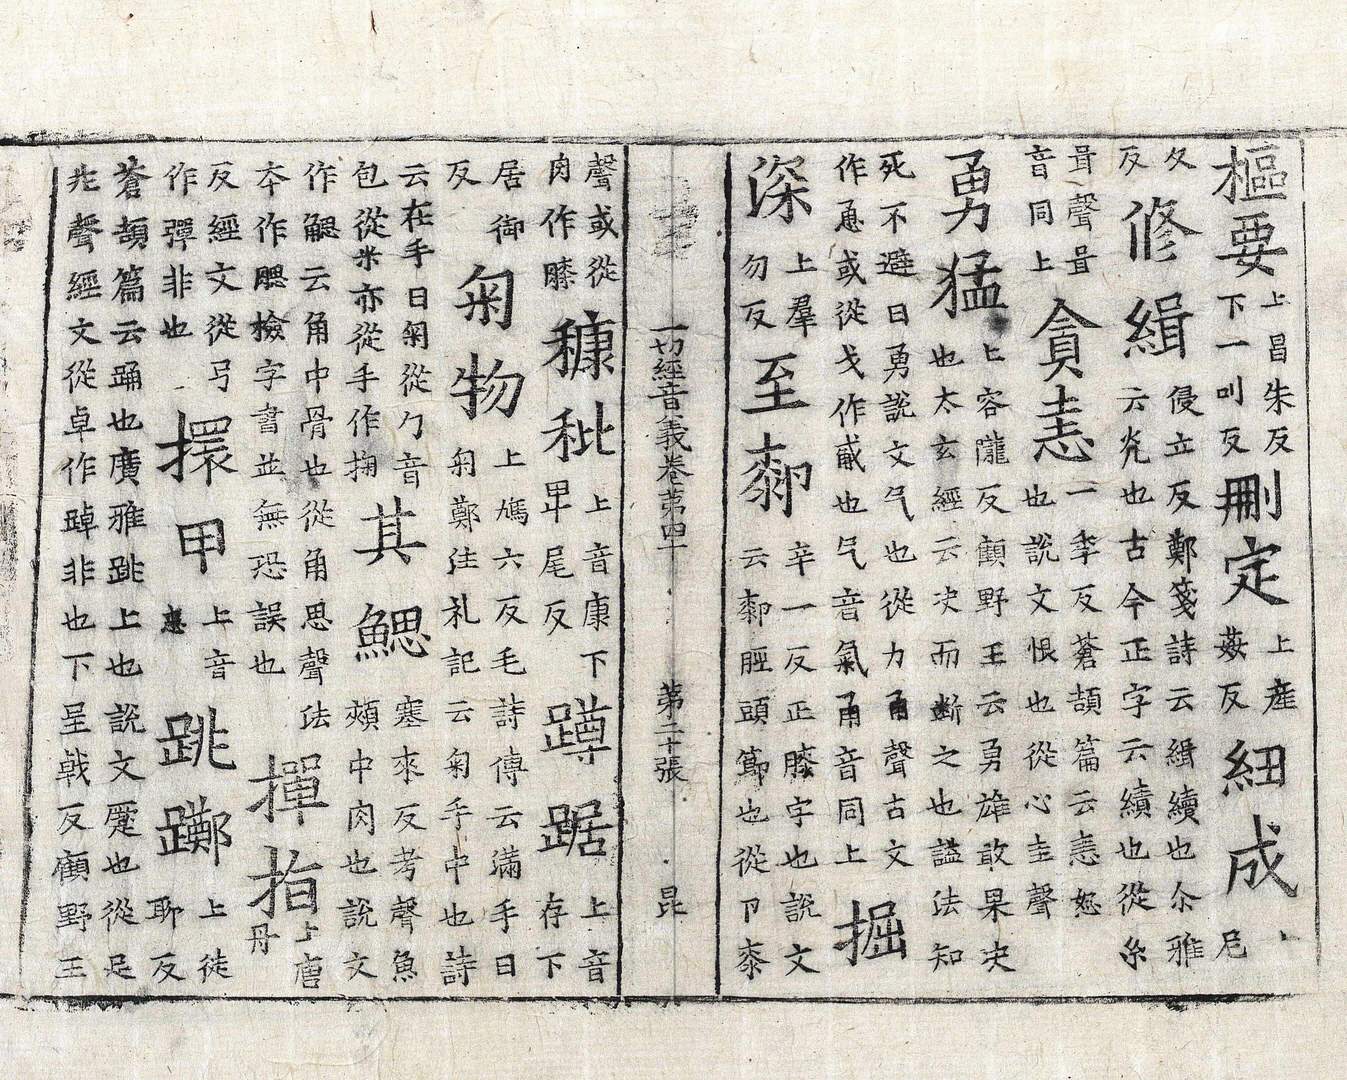 樞要上昌朱反下一叫反刪定上產姦反紐成尼
久反修緝侵立反鄭箋詩云緝續也尒雅云光也古今正字云續也從糸
咠聲咠音同上貪恚一季反蒼頡篇云恚怒也說文恨也從心圭聲
勇猛上容隴反顧野王云勇雄敢果决也太玄經云决而斷之也謚法知
死不避曰勇說文气也從力甬聲古文作恿或從戈作㦷也气音氣甬音同上掘
深上羣勿反至厀辛一反正膝字也說文云厀脛頭節也從卩桼
一切經音義卷第四十 第二十張 昆
聲或從肉作膝穅秕上音康下卑尾反蹲踞上音存下
居御反匊物上鳩六反毛詩傳云滿手曰匊鄭注礼記云匊手中也詩
云在手曰匊從勹音包從米亦從手作掬其鰓塞來反考聲魚頰中肉也說文
作䚡云角中骨也從角思聲法本作腮檢字書並無恐誤也撣指上唐丹
反經文從弓作彈非也擐甲上音患跳躑上徒聊反
蒼頡篇云踊也廣雅跳上也說文蹷也從足兆聲經文從卓作踔非也下呈戟反顧野王